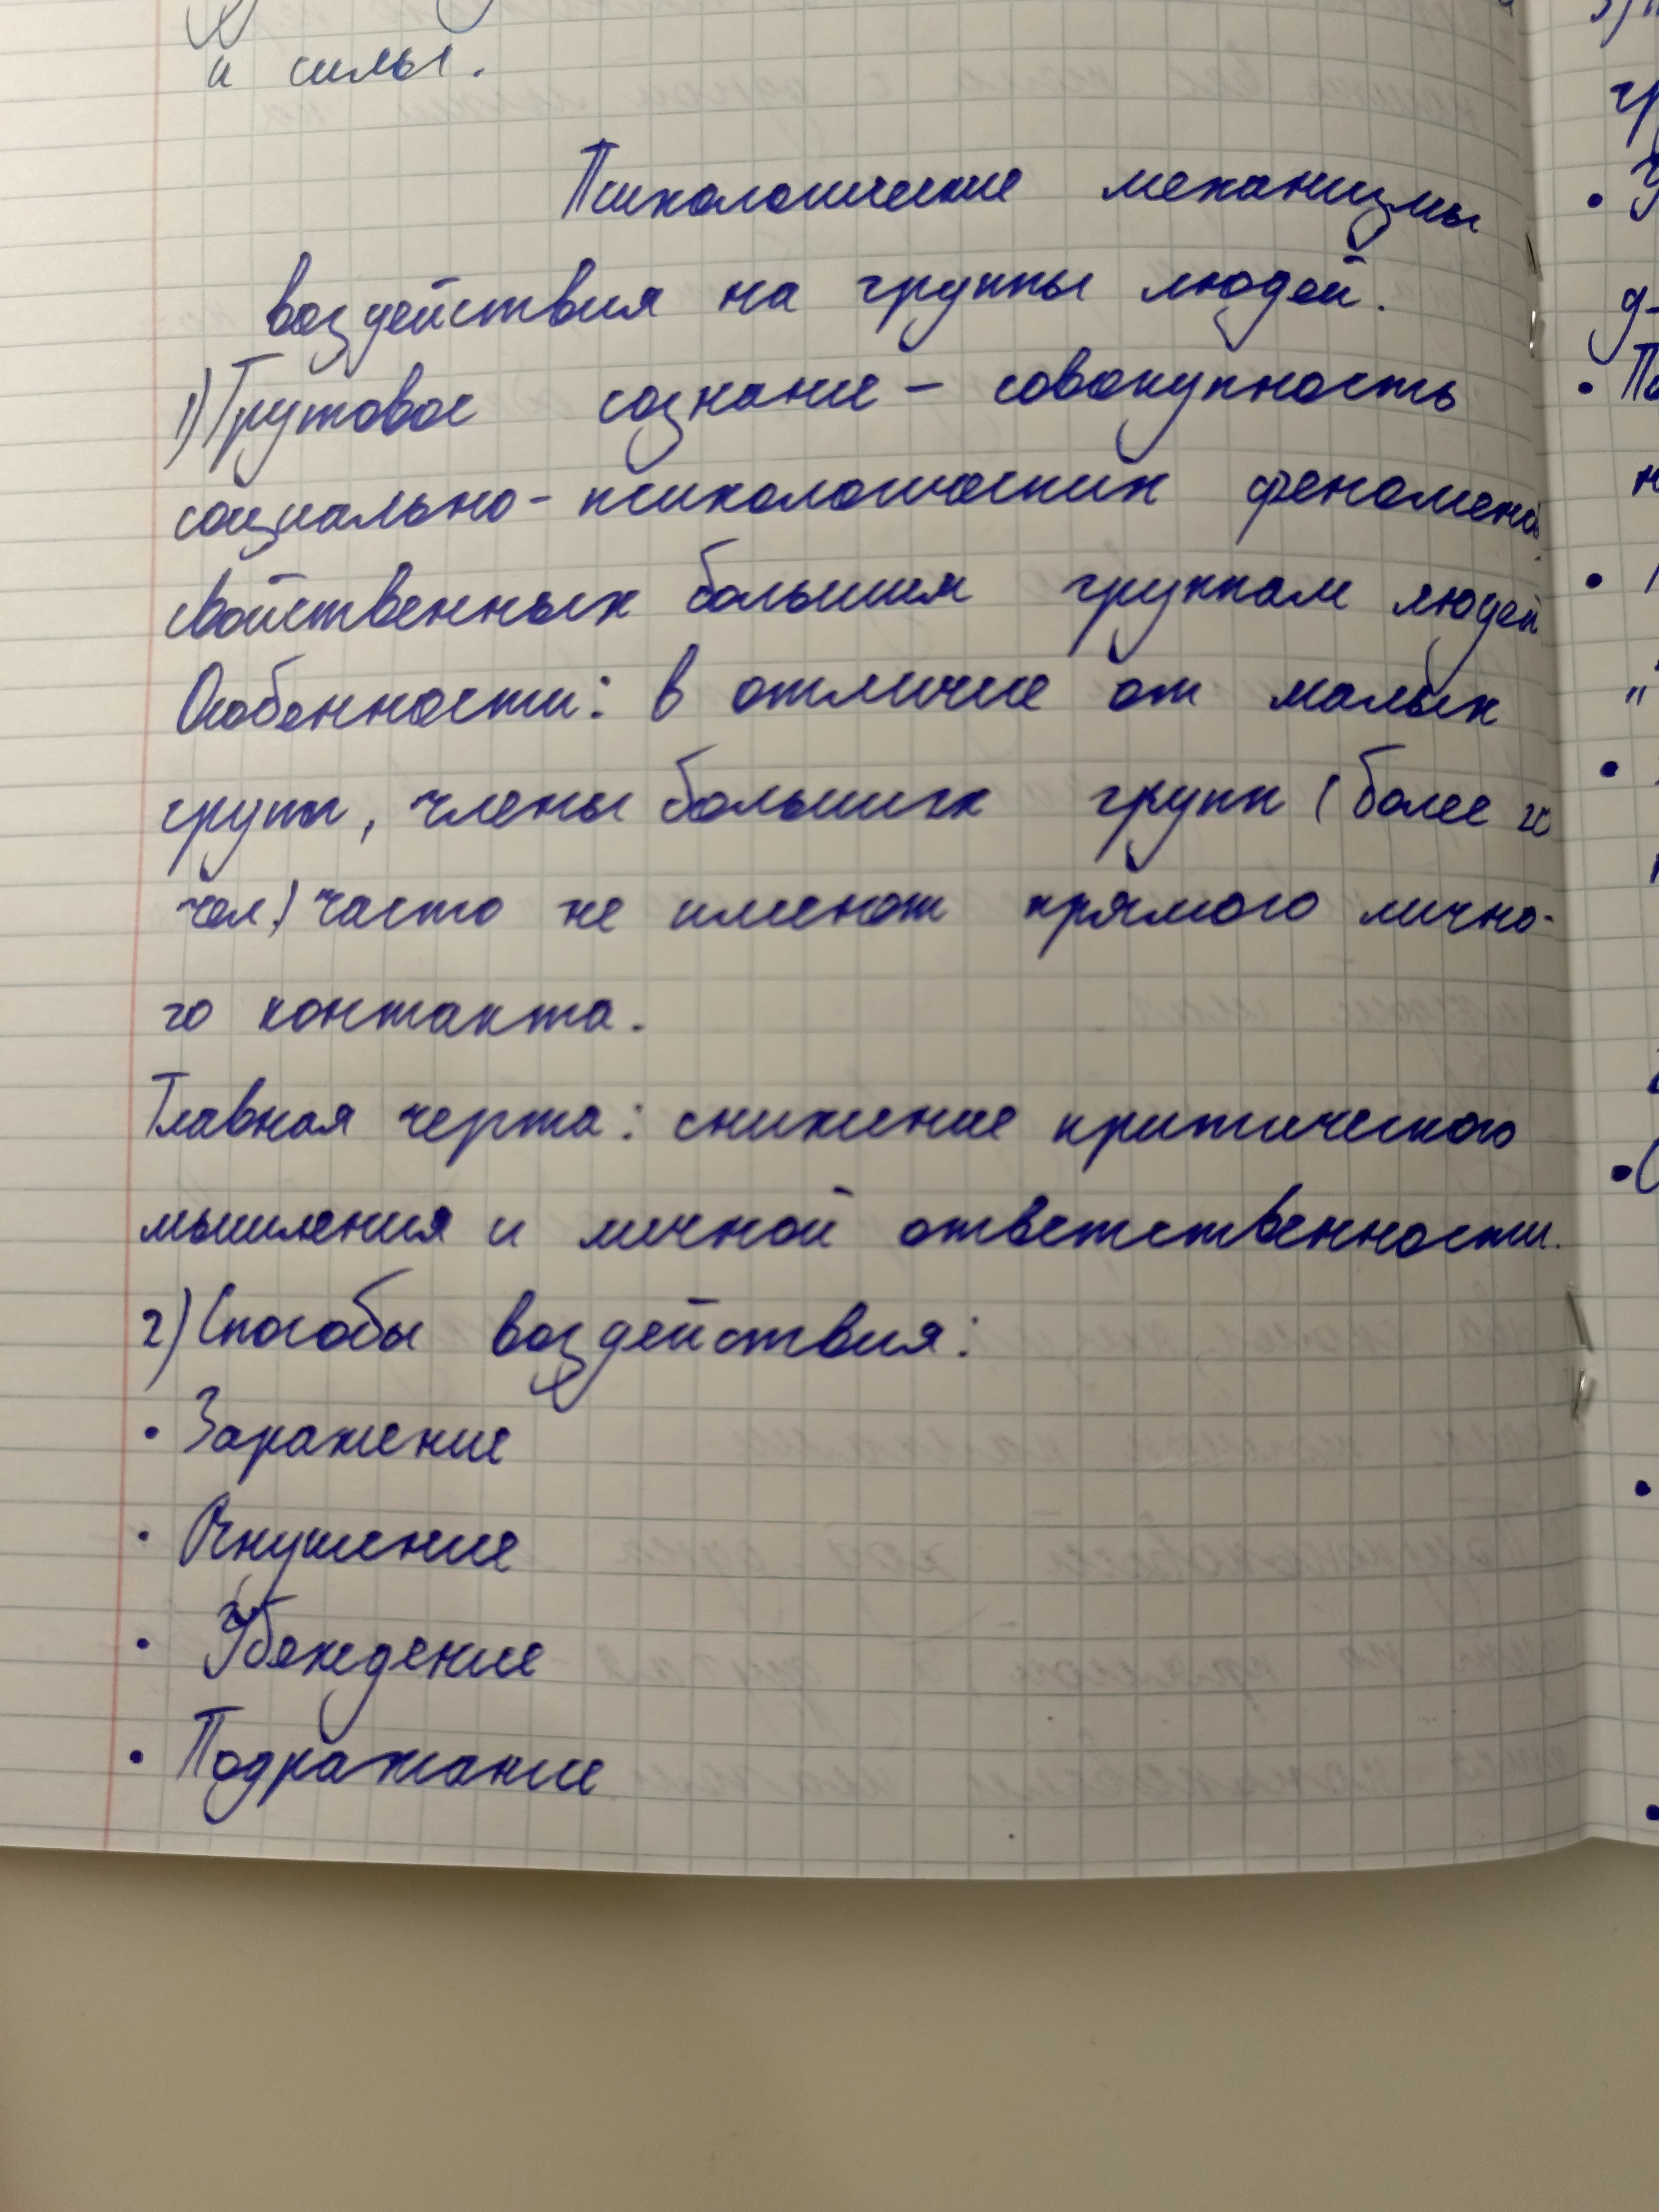 и силы.
Психологические механизмы
воздействия на группы людей.
1) Групповое сознание – совокупность
социально-психологических феноменов,
свойственных большим группам людей
Особенности: в отличие от малых
групп, члены больших групп (более 20
чел.) часто не имеют прямого лично-
го контакта.
Главная черта: снижение критического
мышления и личной ответственности.
2) Способы воздействия:
• Заражение
• Внушение
• Убеждение
• Подражание